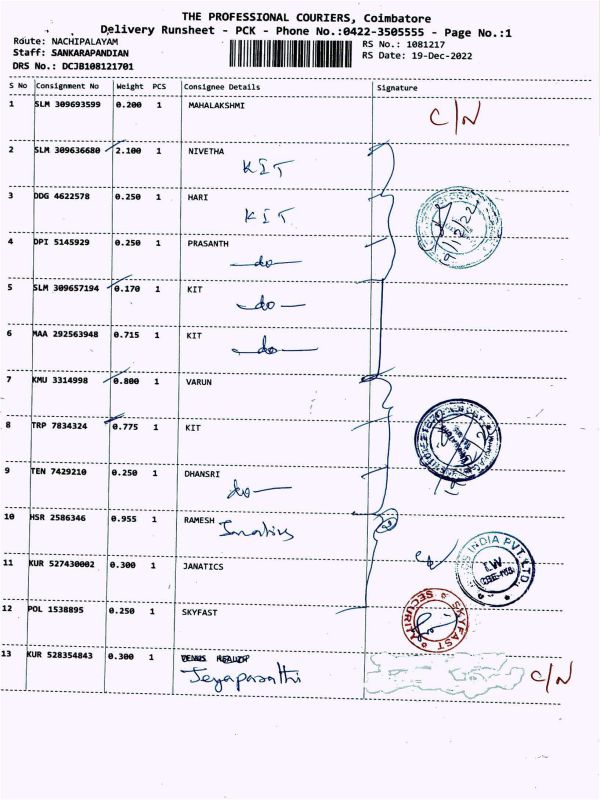 THE PROFESSIONAL COURIERS, Coimbatore
Delivery Runsheet - PCK - Phone No.:0422-3505555 - Page No.:1
Route: NACHIPALAYAM RS No.: 1081217
Staff: SANKARAPANDIAN RS Date: 19-Dec-2022
DRS No.: DCJB108121701
S No Consignment No Weight PCS Consignee Details Signature
1 SLM 309693599 0.200 1 MAHALAKSHMI C/N
2 SLM 309636680 2.100 1 NIVETHA
KIT
3 DDG 4622578 0.250 1 HARI
KIT
4 DPI 5145929 0.250 1 PRASANTH
—do—
5 SLM 309657194 0.170 1 KIT
—do—
6 MAA 292563948 0.715 1 KIT
—do—
7 KMU 3314998 0.800 1 VARUN
8 TRP 7834324 0.775 1 KIT
9 TEN 7429210 0.250 1 DHANSRI
do—
10 HSR 2586346 0.955 1 RAMESH Janatics
11 KUR 527430002 0.300 1 JANATICS
INDIA PVT. LTD
12 POL 1538895 0.250 1 SKYFAST
SKYFAST SECURIT
13 KUR 528354843 0.300 1 VENUS HEALTH
Jeyaparathi C/N